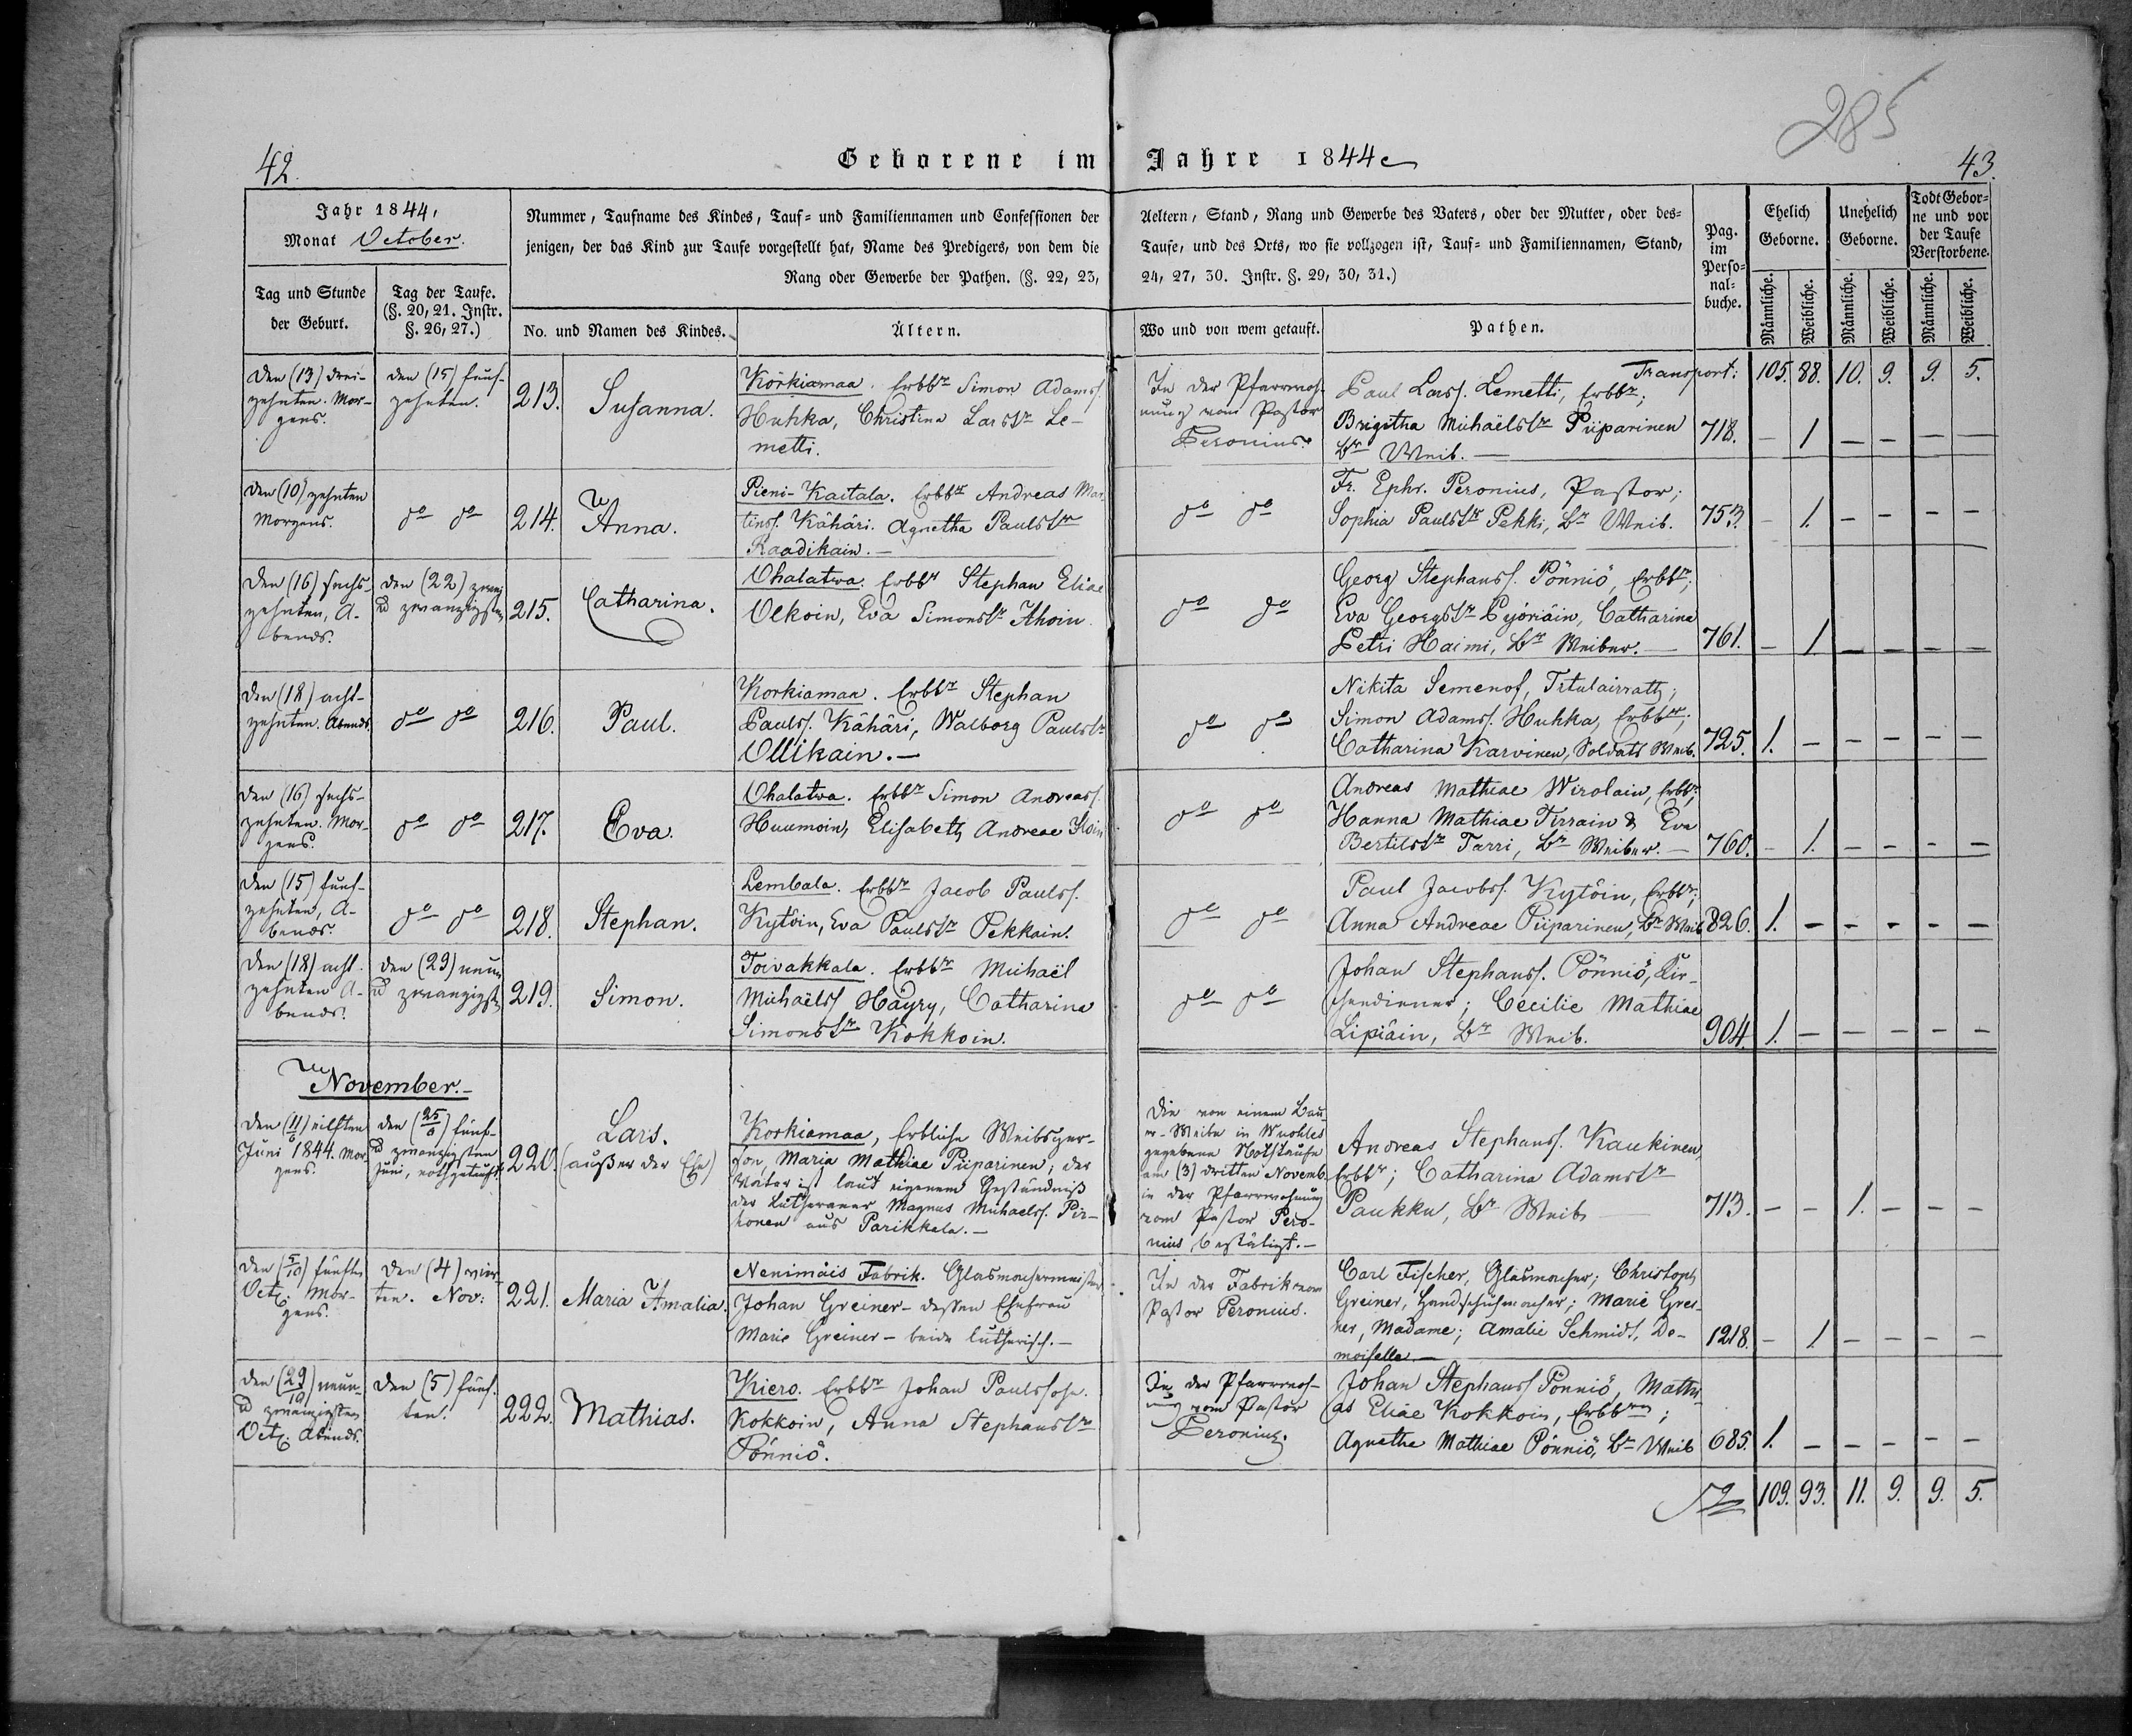 285
42.
Geborene im Jahre 1844
43.
Jahr 1844,
Monat October.
Tag und Stunde
der Geburt.
Tag der Taufe.
(§. 20, 21. Instr.
§. 26, 27.)
Nummer, Taufname des Kindes, Tauf- und Familiennamen und Confessionen der
jenigen, der das Kind zur Taufe vorgestellt hat, Name des Predigers, von dem die
Rang oder Gewerbe der Pathen. (§. 22, 23,
No. und Namen des Kindes.
Ältern.
Aeltern, Stand, Rang und Gewerbe des Vaters, oder der Mutter, oder des-
Taufe, und des Orts, wo sie vollzogen ist, Tauf- und Familiennamen, Stand,
24, 27, 30. Instr. §. 29, 30, 31.)
Wo und von wem getauft.
Pathen.
Pag.
im
Perso-
nal-
buche.
Ehelich
Geborne.
Unehelich
Geborne.
Todt Gebor-
ne und vor
der Taufe
Verstorbene.
Männliche.
Weibliche.
Männliche.
Weibliche.
Männliche.
Weibliche.
Transport: 105. 88. 10. 9. 9. 5.
Den (13) drei-
zehnten. Mor-
gens.
den (15) fünf-
zehnten.
213.
Susanna.
Korkiamaa. Erbbr Simon Adamss.
Huhka, Christina Larsstr Le-
metti.
In der Pfarrwoh-
nung vom Pastor
Peronius.
Paul Larss. Lemetti, Erbbr;
Brigitha Michaëlstr Piiparinen
Br Weib. —
718. — 1 — — — —
Den (10) zehnten
Morgens.
do do
214.
Anna.
Pieni-Kaitala. Erbbr Andreas Mar-
tinss. Kähäri. Agnetha Paulstr
Raadikain. —
do do
Fr. Ephr. Peronius, Pastor;
Sophia Paulstr Pekki, Br Weib.
753. — 1. — — — —
Den (16) sechs-
zehnten, A-
bends.
den (22) zwei
u zwanzigsten
215.
Catharina.
Uhalatwa. Erbbr Stephan Eliae
Olkoin, Eva Simonstr Ihoin
do do
Georg Stephanss. Pönniö, Erbbr;
Eva Georgstr Pejöriäin, Catharina
Petri Haimi, Br Weiber. —
761. — 1 — — — —
Den (18) acht-
zehnten. Abends.
do do
216.
Paul.
Korkiamaa. Erbbr Stephan
Paulss. Kähäri, Walborg Paulstr
Ollikain. —
do do
Nikita Semenof, Titulairrath;
Simon Adamss. Huhka, Erbbr;
Catharina Karvinen, Soldats Weib.
725. 1. — — — — —
Den (16) sechs-
zehnten. Mor-
gens.
do do
217.
Eva.
Uhalatwa. Erbbr Simon Andreass.
Huumoin, Elisabeth Andreae
do do
Andreas Mathiae Wirolain, Erbbr;
Hanna Mathiae Tirrain & Eva
Bertilstr Tarri, Br Weiber. —
760. — 1. — — — —
Den (15) fünf-
zehnten, A-
bends.
do do
218.
Stephan.
Lembala. Erbbr Jacob Paulss.
Kytöin, Eva Paulstr Pekkain.
do do
Paul Jacobss. Kytöin, Erbbr;
Anna Andreae Piiparinen, Br Weib
826. 1. — — — — —
Den (18) acht-
zehnten A-
bends.
den (29) neun
u zwanzigsten
219.
Simon.
Toivakkala. Erbbr Michaël
Michaëlss Häyry, Catharina
Simonstr Kokkoin.
do do
Johan Stephanss. Pönniö, Kir-
chendiener; Cecilie Mathiae
Lipiäin, Br Weib.
904. 1. — — — — —
November. —
Den (11/6) eilften
Juni 1844. Mor-
gens.
den (25/6) fünf-
u zwanzigsten
Juni, nothgetauft.
220.
Lars.
(außer der Ehe)
Korkiamaa, Erbliche Weibsper-
son, Maria Mathiae Piiparinen; der
Vater ist laut eigenem Geständniß
der Lutheraner Magnus Michaelss. Pir-
honen aus Parikkala. —
Die von einem Bau-
er-Weibe in
gegebene Nothtaufe
am (3) dritten Novemb.
in der Pfarrwohnung
vom Pastor Pero-
nius bestätigt. —
Andreas Stephanss. Kaukinen,
Erbbr; Catharina Adamstr
Paukku, Br Weib —
713. — — 1. — — —
Den (5/10) fünften
Oct. Mor-
gens.
Den (4) vier-
ten. Nov:
221.
Maria Amalia.
Nenimäis Fabrik. Glasmachermeister
Johan Greiner — dessen Ehefrau
Marie Greiner — beide lutherisch. —
In der Fabrik vom
Pastor Peronius.
Carl Fischer, Glasmacher; Christoph
Greiner, Handschuhmacher; Marie Grei-
ner, Madame; Amalie Schmidt, De-
moiselle. —
1218. — 1 — — — —
Den (29/10) neun-
u zwanzigsten
Oct. Abends.
Den (5) fünf-
ten.
222.
Mathias.
Kiero. Erbbr Johan Paulssohn.
Kokkoin, Anna Stephanstr
Pönniö.
In der Pfarrwoh-
nung vom Pastor
Peronius.
Johan Stephanss Pönniö, Mathi-
as Eliae Kokkoin, Erbbrn;
Agnetha Mathiae Pönniö, Br Weib
685. 1. — — — — —
109. 93. 11. 9. 9. 5.